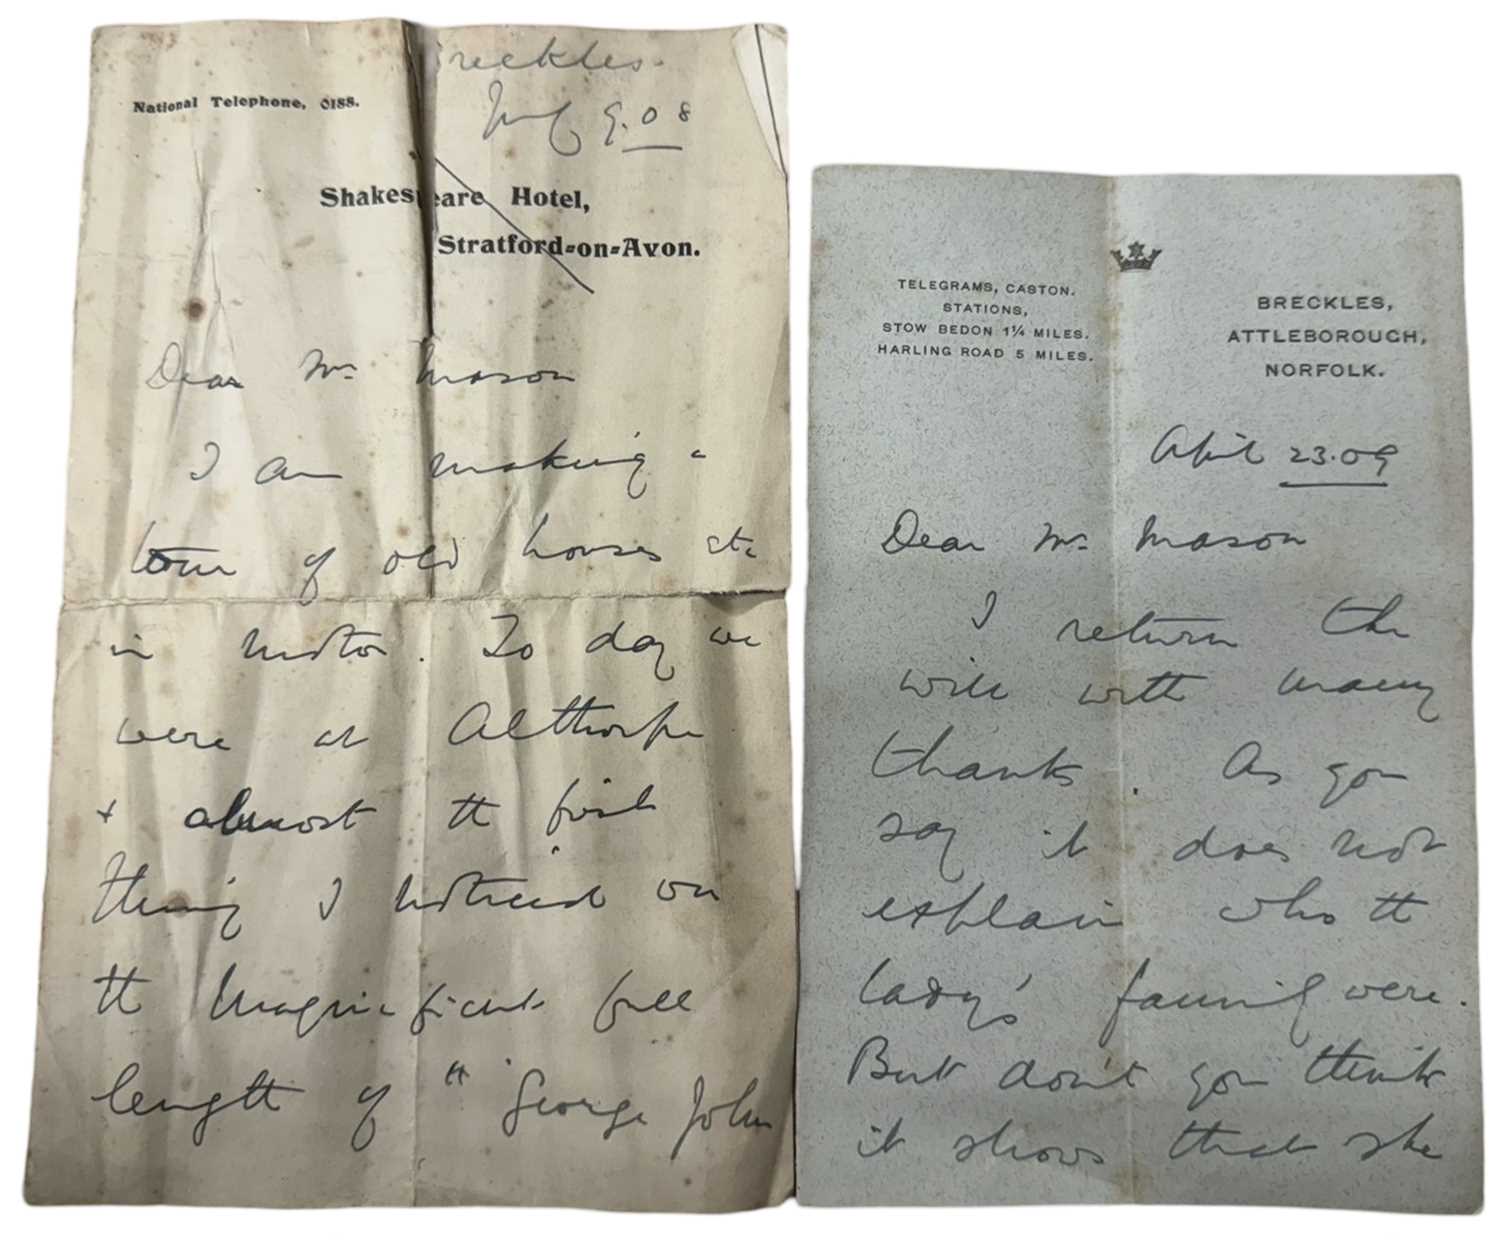 Breckles.
July 9.08
National Telephone, 0188.
Shakespeare Hotel,
Stratford-on-Avon.
Dear Mr Mason
I am making a
tour of old houses etc
in motor. To day we
were at Althorpe
& almost the first
thing I noticed on
the magnificent full
length of "George John
TELEGRAMS, CASTON.
STATIONS,
STOW BEDON 1¼ MILES.
HARLING ROAD 5 MILES.
BRECKLES,
ATTLEBOROUGH,
NORFOLK.
April 23.09
Dear Mr Mason
I return the
will with many
thanks. As you
say it does not
explain who the
lady's family were.
But don't you think
it shows that she